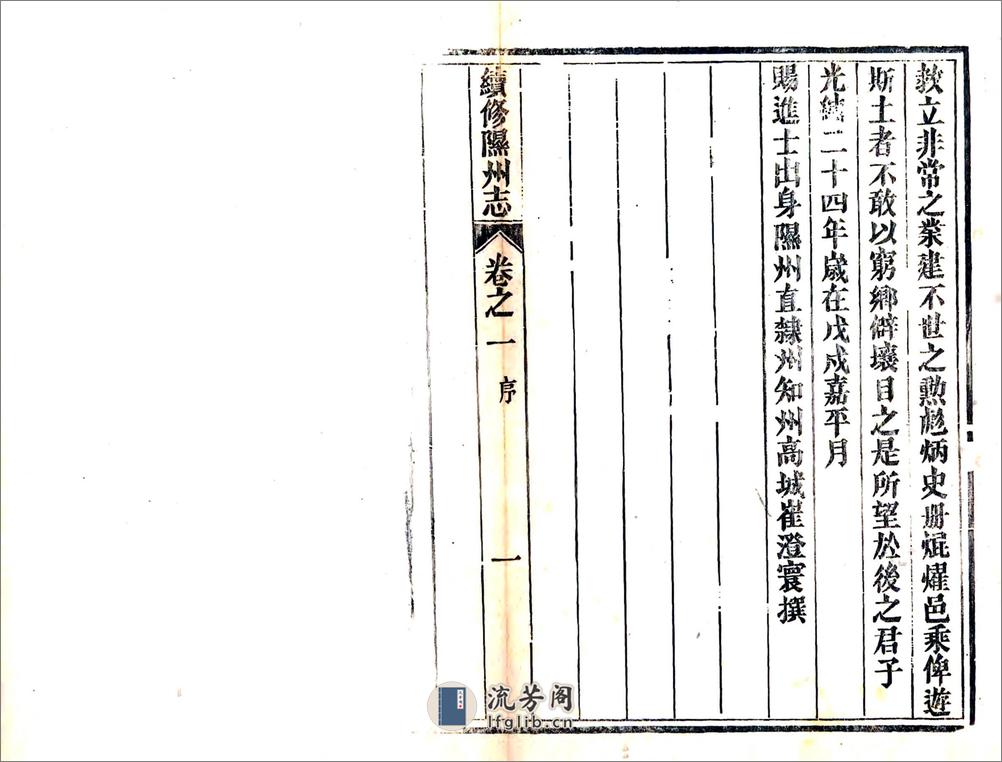 教立非常之業建不世之勲彪炳史册焜燿邑乘俾遊
斯土者不敢以窮鄉僻壤目之是所望於後之君子
光緒二十四年歲在戊戌嘉平月
賜進士出身隰州直隸州知州高城崔澄寰撰
續修隰州志 卷之一 序 一
流芳阁
lfglib.cn